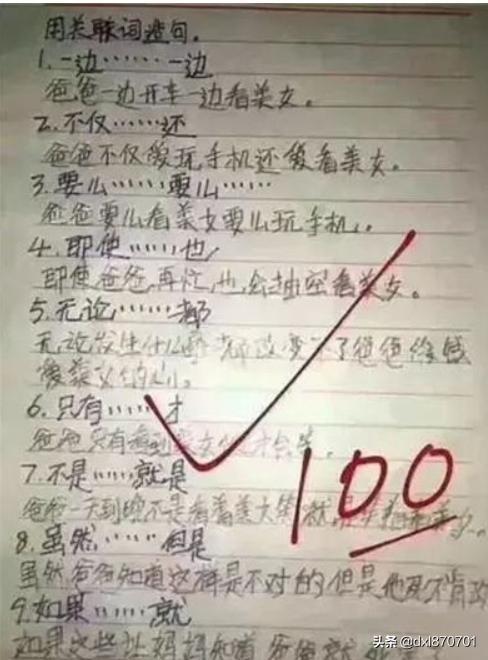 用关联词造句。
1.一边……一边
爸爸一边开车一边看美女。
2.不仅……还
爸爸不仅爱玩手机还爱看美女。
3.要么……要么……
爸爸要么看美女要么玩手机。
4.即使……也
即使爸爸再忙,也会抽空看美女。
5.无论……都
无论发生什么事都改变不了爸爸
爱美女的心。
6.只有……才
爸爸只有看到美女才会笑。
7.不是……就是
爸爸一天到晚不是看着美女笑就是
8.虽然……但是
虽然爸爸知道这样是不对的但是他死不肯改
9.如果……就
如果这些让妈妈知道爸爸就
100
头条 @dxl870701